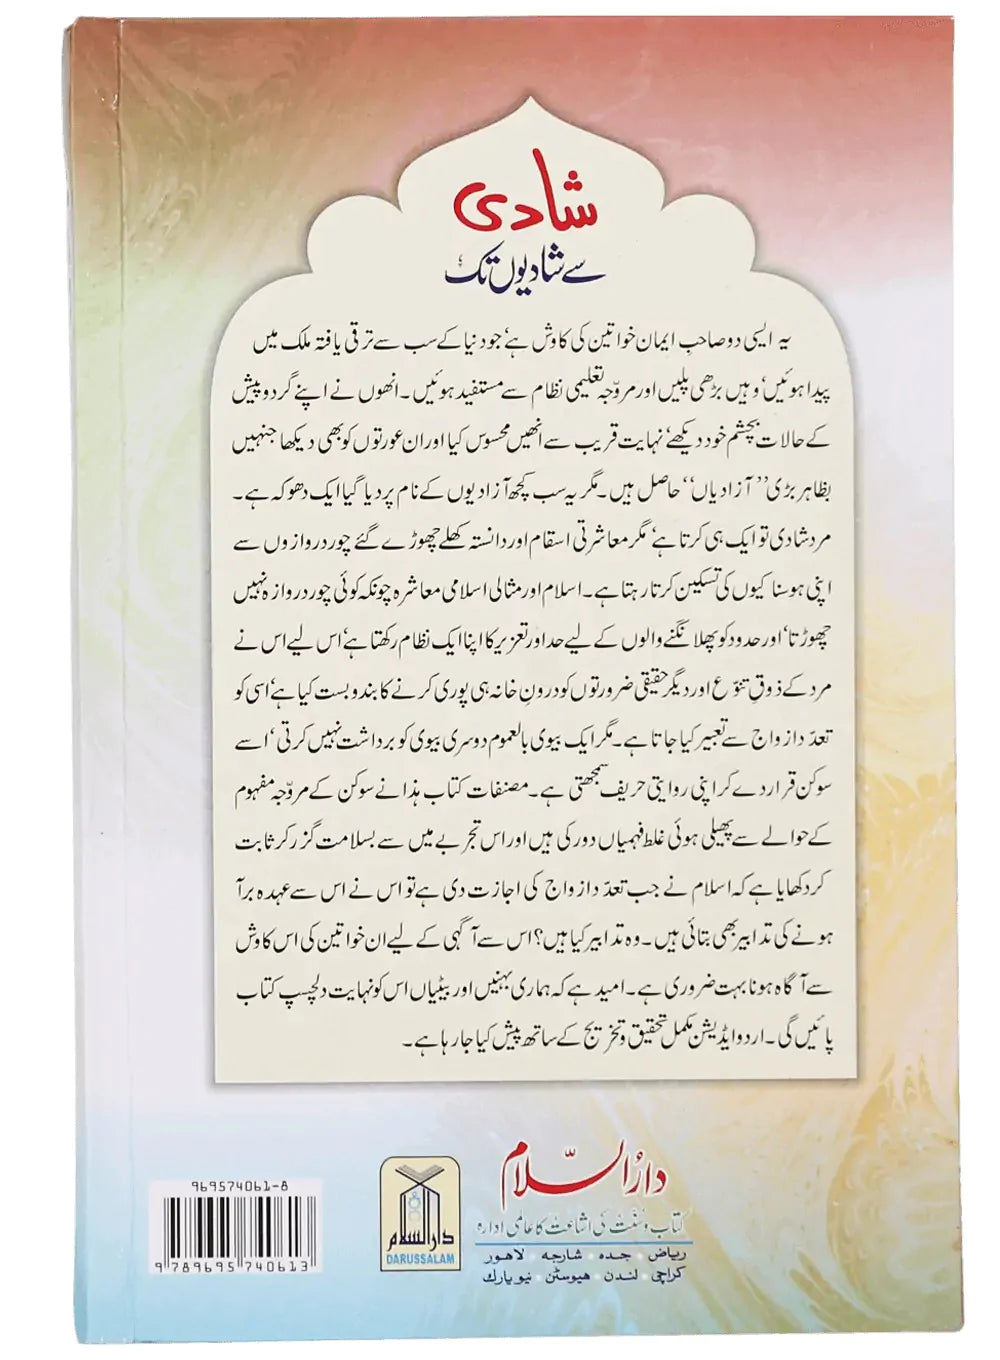 شادی
سے شادیوں تک
یہ ایسی دو صاحبِ ایمان خواتین کی کاوش ہے، جو دنیا کے سب سے ترقی یافتہ ملک میں
پیدا ہوئیں، وہیں بڑھی پلیں اور مروّجہ تعلیمی نظام سے مستفید ہوئیں۔ انھوں نے اپنے گردوپیش
کے حالات بچشم خود دیکھے، نہایت قریب سے انھیں محسوس کیا اور ان عورتوں کو بھی دیکھا جنہیں
بظاہر بڑی ’’آزادیاں‘‘ حاصل ہیں۔ مگر یہ سب کچھ آزادیوں کے نام پر دیا گیا ایک دھوکہ ہے۔
مرد شادی تو ایک ہی کرتا ہے، مگر معاشرتی اسقام اور دانستہ کھلے چھوڑے گئے چور دروازوں سے
اپنی ہوسناکیوں کی تسکین کرتا رہتا ہے۔ اسلام اور مثالی اسلامی معاشرہ چونکہ کوئی چور دروازہ نہیں
چھوڑتا، اور حدود کو پھلانگنے والوں کے لیے حد اور تعزیر کا اپنا ایک نظام رکھتا ہے، اس لیے اس نے
مرد کے ذوقِ تنوّع اور دیگر حقیقی ضرورتوں کو درونِ خانہ ہی پوری کرنے کا بندوبست کیا ہے، اسی کو
تعدّد ازواج سے تعبیر کیا جاتا ہے۔ مگر ایک بیوی بالعموم دوسری بیوی کو برداشت نہیں کرتی، اسے
سوکن قرار دے کر اپنی روایتی حریف سمجھتی ہے۔ مصنفات کتاب ہذا نے سوکن کے مروّجہ مفہوم
کے حوالے سے پھیلی ہوئی غلط فہمیاں دور کی ہیں اور اس تجربے میں سے بسلامت گزر کر ثابت
کر دکھایا ہے کہ اسلام نے جب تعدّد ازواج کی اجازت دی ہے تو اس نے اس سے عہدہ برآ
ہونے کی تدابیر بھی بتائی ہیں۔ وہ تدابیر کیا ہیں؟ اس سے آگہی کے لیے ان خواتین کی اس کاوش
سے آگاہ ہونا بہت ضروری ہے۔ امید ہے کہ ہماری بہنیں اور بیٹیاں اس کو نہایت دلچسپ کتاب
پائیں گی۔ اردو ایڈیشن مکمل تحقیق و تخریج کے ساتھ پیش کیا جا رہا ہے۔
دارُالسّلام
کتاب و سُنّت کی اشاعت کا عالمی ادارہ
ریاض • جدہ • شارجہ • لاہور
کراچی • لندن • ہیوسٹن • نیو یارک
دارالسلام
DARUSSALAM
969574061-8
9 789695 740613